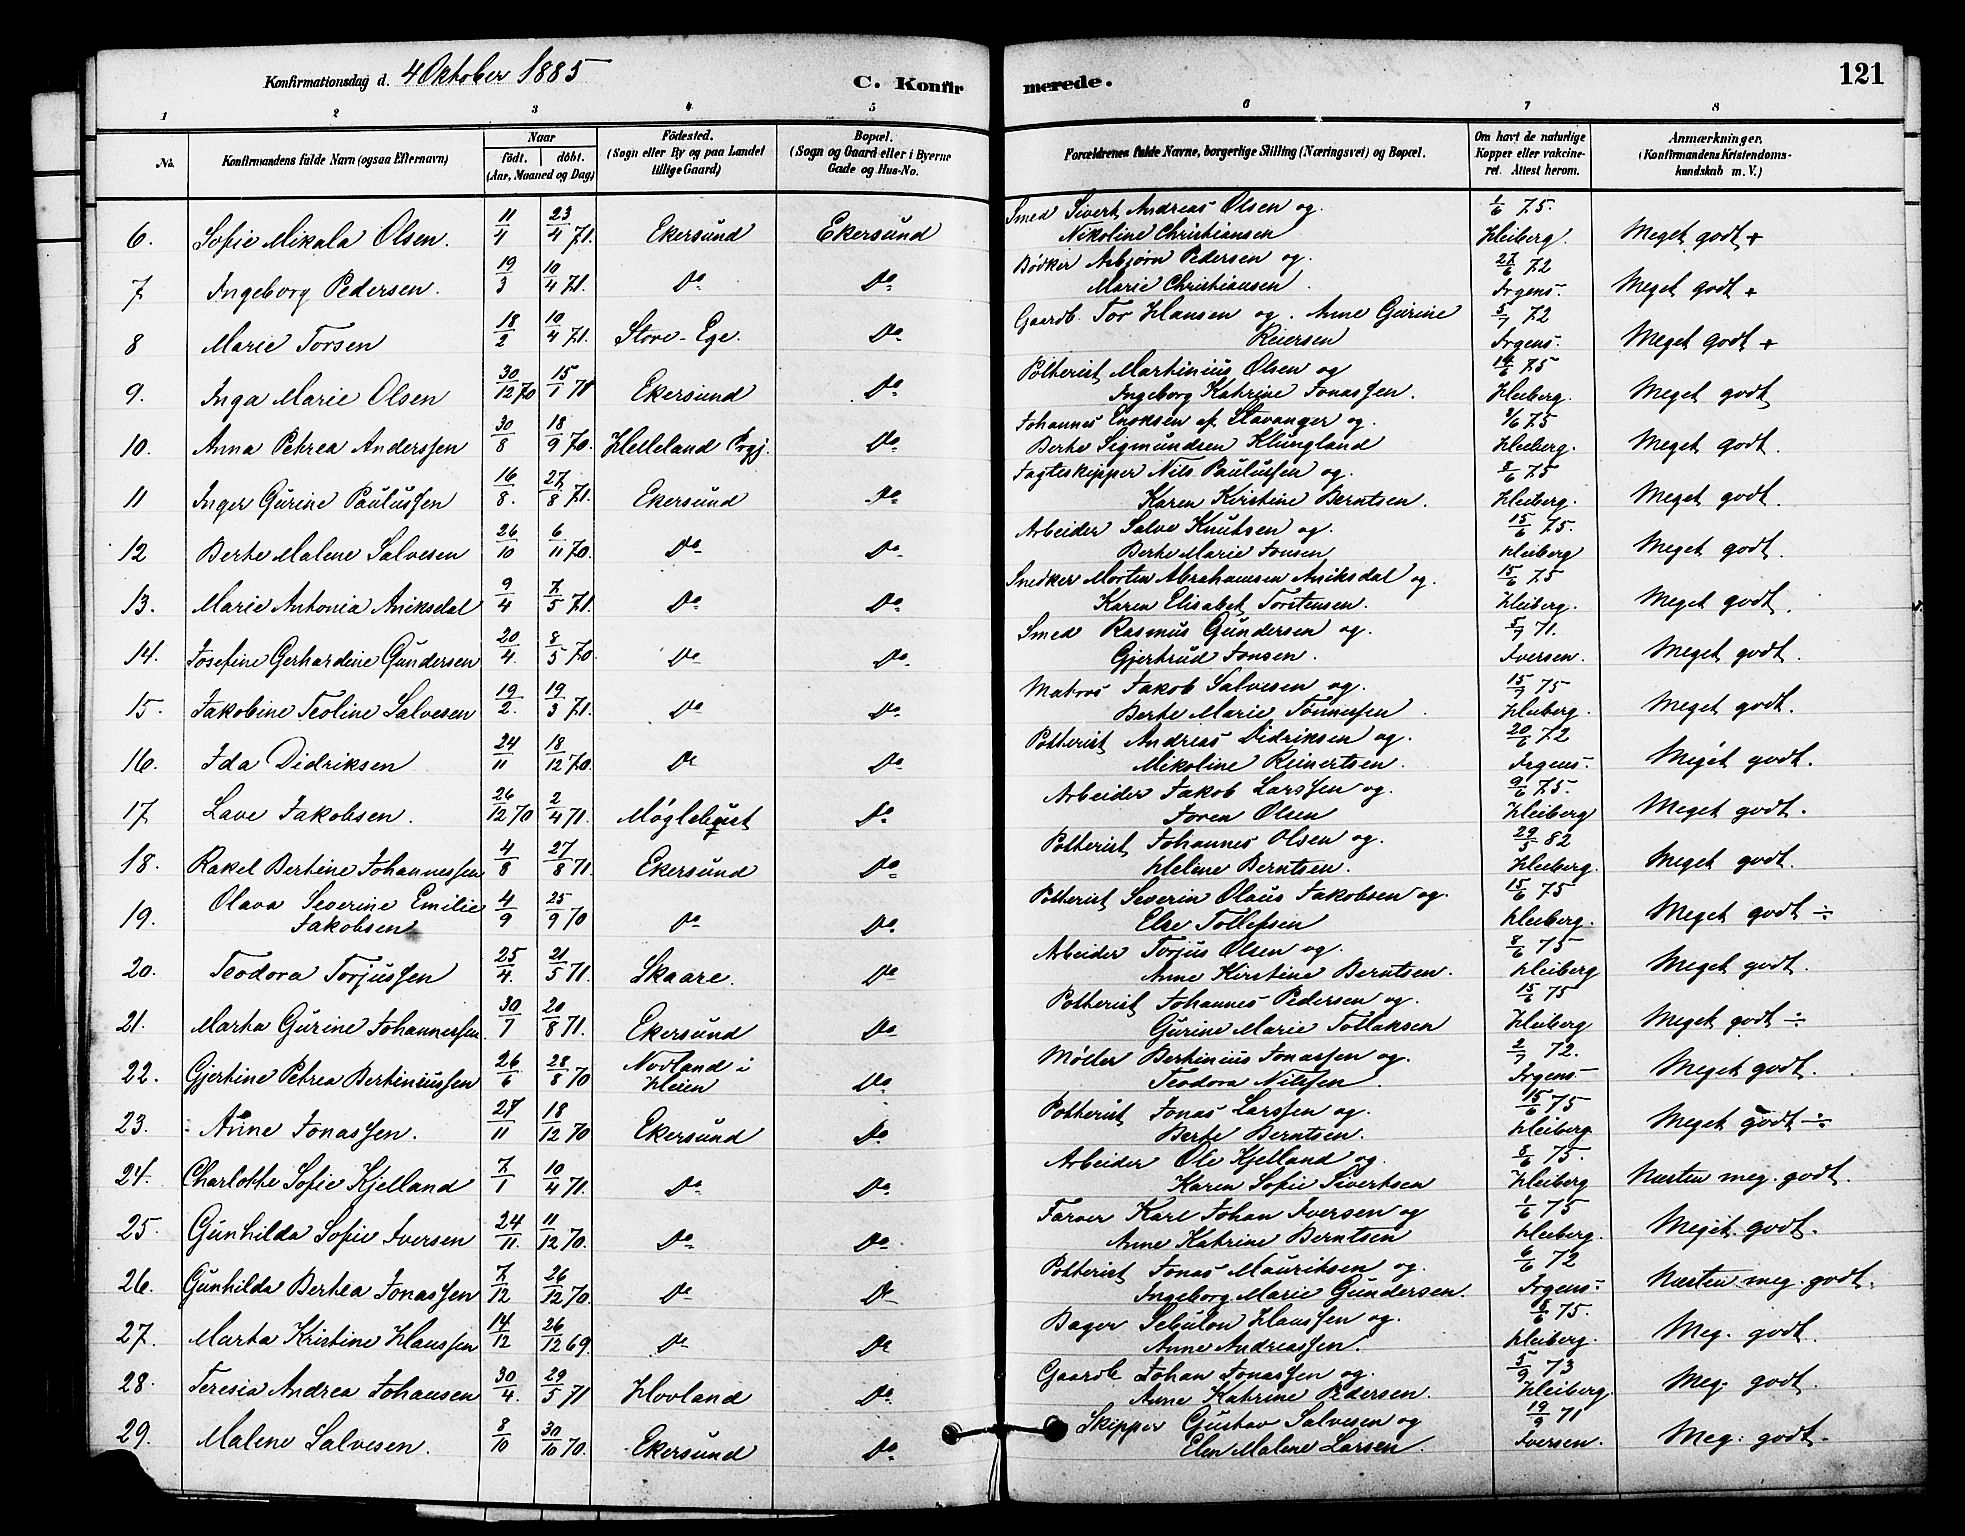 Konfirmationsdag d. 4 Oktober 1885
C. Konfirmerede.
121
1 2 3 4 5 6 7 8
No. Konfirmandens fulde Navn (ogsaa Efternavn) Naar født. døbt. (Aar, Maaned og Dag) Födested. (Sogn eller By og paa Landet tillige Gaard) Bopæl. (Sogn og Gaard eller i Byerne Gade og Hus-No. Forældrenes fulde Navne, borgerlige Stilling (Næringsvei) og Bopæl. Om havt de naturlige Kopper eller vakcineret. Attest herom. Anmærkninger. (Konfirmandens Kristendomskundskab m. V.)
6. Sofie Mikala Olsen. 11/4 23/4 71. Ekersund Ekersund Smed Sivert Andreas Olsen og Nikoline Christiansen 1/6 75. Heiberg. Meget godt +
7 Ingeborg Pedersen. 19/3 10/4 71. Do Do Bødker Asbjørn Pedersen og Marie Christiansen. 27/6 72 Irgens. Meget godt +
8 Marie Torsen 18/2 10/4 71. Store-Ege. Do Gaardb. Tor Hansen og Anne Gurine Reiersen 5/7 72 Irgens. Meget godt +
9. Inga Marie Olsen 30/12 70 15/1 71 Ekersund Do Potterist Martinius Olsen og Ingeborg Katrine Jonassen. 14/6 75 Heiberg. Meget godt
10. Anna Petrea Anderssen 30/8 18/9 70. Helleland Prgj. Do Johannes Enoksen af Stavanger og Berte Sigmundsen Klungland 3/6 75 Heiberg. Meget godt.
11 Inger Gurine Paulussen 16/8. 27/8 71. Ekersund Do Jagteskipper Nils Paulussen og Karen Kirstine Berntsen. 8/6 75 Heiberg. Meget godt.
12 Berte Malene Salvesen 26/10 6/11 70. Do Do Arbeider Salve Knutsen og Berte Marie Jonsen 15/6 75. Heiberg Meget godt.
13. Marie Antonia Aniksdal 9/4 7/5 71. Do Do Snedker Morten Abrahamsen Aniksdal og Karen Elisabet Torstensen. 15/6 75 Heiberg. Meget godt.
14. Josefine Gerhardine Gundersen 20/4. 8/5 70. Do Do Smed Rasmus Gundersen og Gjertrud Jonsen. 5/7 71. Iversen. Meget godt.
15. Jakobine Teoline Salvesen 19/2. 19/3 71. Do Do Matros Jakob Salvesen og Berte Marie Tønnessen 15/7 75 Heiberg. Meget godt.
16. Ida Didriksen 24/11 18/12 70. Do Do Potterist Andreas Didriksen og Mikoline Reinertsen. 20/6 72 Irgens. Meget godt.
17 Lave Jakobsen. 26/12 70 2/4 71. Møglebust Do Arbeider Jakob Larssen og Joren Olsen 9/6 75. Heiberg Meget godt.
18. Rakel Bertine Johannessen 4/8 27/8 71. Ekersund Do Potterist Johannes Olsen og Helene Berntsen. 29/5 82 Heiberg. Meget godt.
19. Olava Severine Emilie Jakobsen 4/9 25/9 70 Do Do Potterist Severin Olaus Jakobsen og Else Tollefsen 15/6 75 Heiberg. Meget godt ÷
20. Teodora Torjussen 25/4. 21/5 71. Skaare. Do Arbeider Torjus Olsen og Anne Kirstine Berntsen. 8/6 75 Heiberg Meget godt.
21. Marta Gurine Johannessen 30/7 20/8 71. Ekersund Do Potterist Johannes Pedersen og Gurine Marie Tollaksen 15/6 75 Heiberg Meget godt ÷
22. Gjertine Petrea Bertiniussen 26/6 28/8 70 Nodland i Heien Do Møller Bertinius Jonassen og Teodora Nilssen. 2/7 72. Irgens Meget godt.
23. Anne Jonassen. 27/11 18/12 70 Ekersund Do Potterist Jonas Larssen og Berte Berntsen. 15/6 75 Heiberg Meget godt ÷
24. Charlotte Sofie Kjelland 7/1 10/4 71. Do Do Arbeider Ole Kjelland og Karen Sofie Sivertsen 8/6 75. Heiberg Næsten meg. godt.
25. Gunhilda Sofie Iversen 24/11. 11/12 70. Do Do Farver Karl Johan Iversen og Anne Katrine Berntsen 1/6 75 Heiberg. Meget godt.
26. Gunhilda Bertea Jonassen 7/12 26/12 70. Do Do Potterist Jonas Mauritsen og Ingeborg Marie Gundersen. 6/6 72 Irgens. Næsten meg. godt.
27. Marta Kristine Hanssen 14/12 26/12 69. Do Do Bager Sebulon Hanssen og Anne Andreassen. 8/6 75. Heiberg. Meg. godt.
28. Teresia Andrea Johansen 30/4. 29/5 71 Hovland Do Gaardb Johan Jonassen og Anne Katrine Pedersen. 5/9 73 Heiberg. Meg. godt.
29. Malene Salvesen. 8/10 30/10 70. Ekersund Do Skipper Gustav Salvesen og Elen Malene Larsen. 19/9 71 Iversen. Meg. godt.